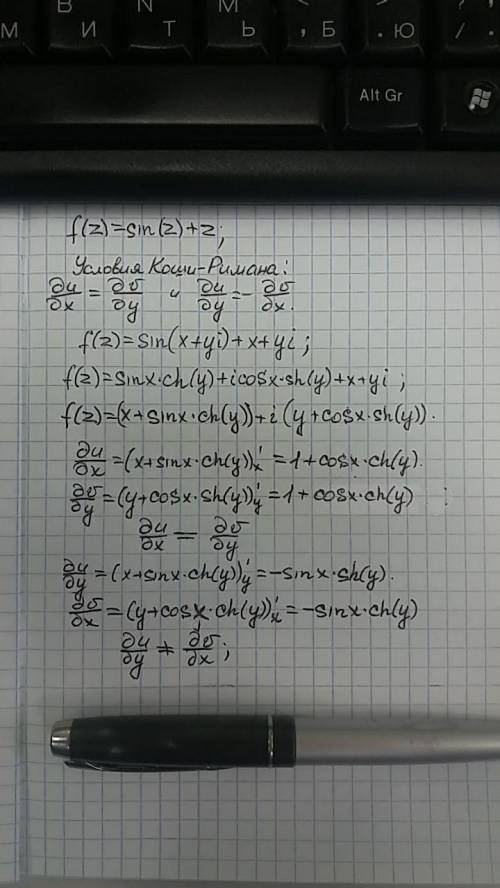 В N М
М И Т Ь , Б . Ю / .
Alt Gr
f(z)=sin(z)+z;
Условия Коши-Римана:
∂u/∂x = ∂v/∂y и ∂u/∂y = -∂v/∂x.
f(z)=sin(x+yi)+x+yi;
f(z)=sinx·ch(y)+icosx·sh(y)+x+yi;
f(z)=(x+sinx·ch(y))+i(y+cosx·sh(y)).
∂u/∂x=(x+sinx·ch(y))'x=1+cosx·ch(y).
∂v/∂y=(y+cosx·sh(y))'y=1+cosx·ch(y)
∂u/∂x = ∂v/∂y
∂u/∂y=(x+sinx·ch(y))'y=-sinx·sh(y).
∂v/∂x=(y+cosx·ch(y))'x=-sinx·ch(y)
∂u/∂y ≠ ∂v/∂x;